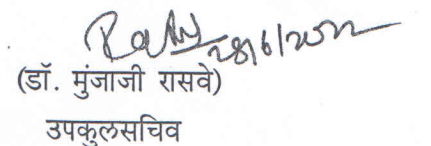 28/6/2022
(डॉ. मुंजाजी रासवे)
उपकुलसचिव